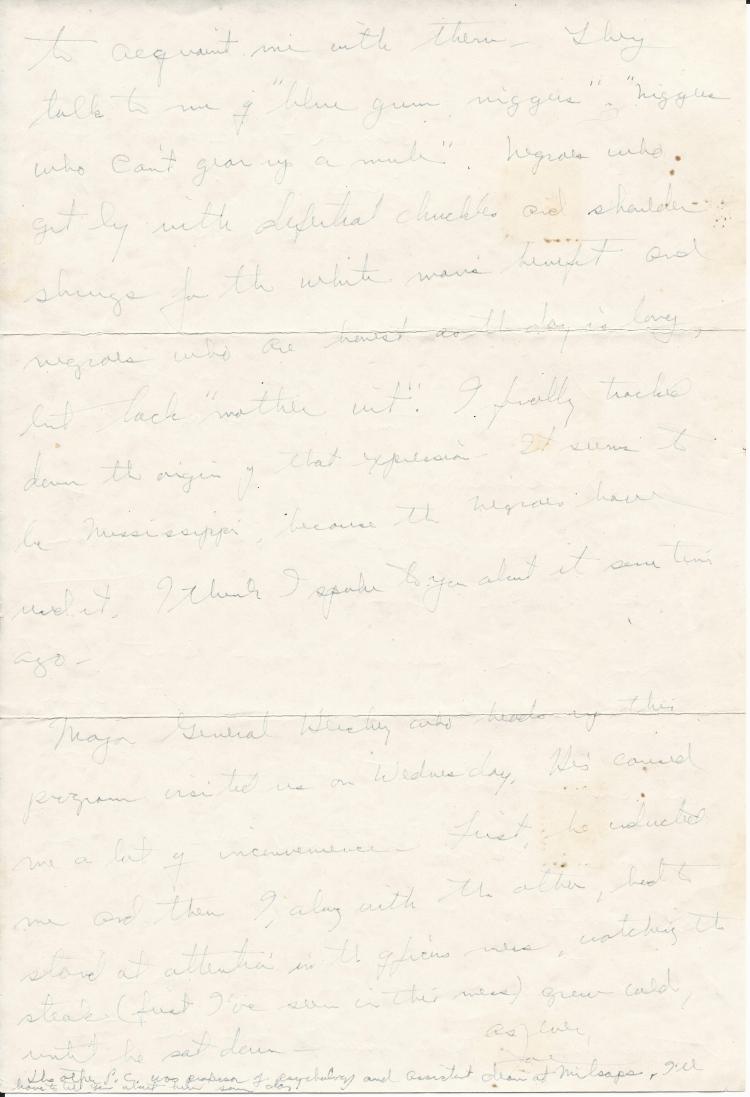 to acquaint me with them — They
talk to me of "blue gum niggers", "niggers
who can't gear up a mule". Negroes who
get by with deferential chuckles and shoulder
shrugs for the white man's benefit and
negroes who are honest as the day is long,
but lack "mother wit". I finally tracked
down the origin of that expression. It seems to
be Mississippi, because the negroes have
used it. I think I spoke to you about it some time
ago —
Major General Hershey who heads up this
program visited us on Wednesday. His caused
me a lot of inconvenience — First, he inducted
me and then I, along with the other, had to
stand at attention in the officers mess, watching the
steak (first I've seen in this mess) grew cold,
until he sat down —
as ever,
Joe
The other P.C. was professor of psychology and assistant dean at Milsaps, I'll
have to tell you about him some day